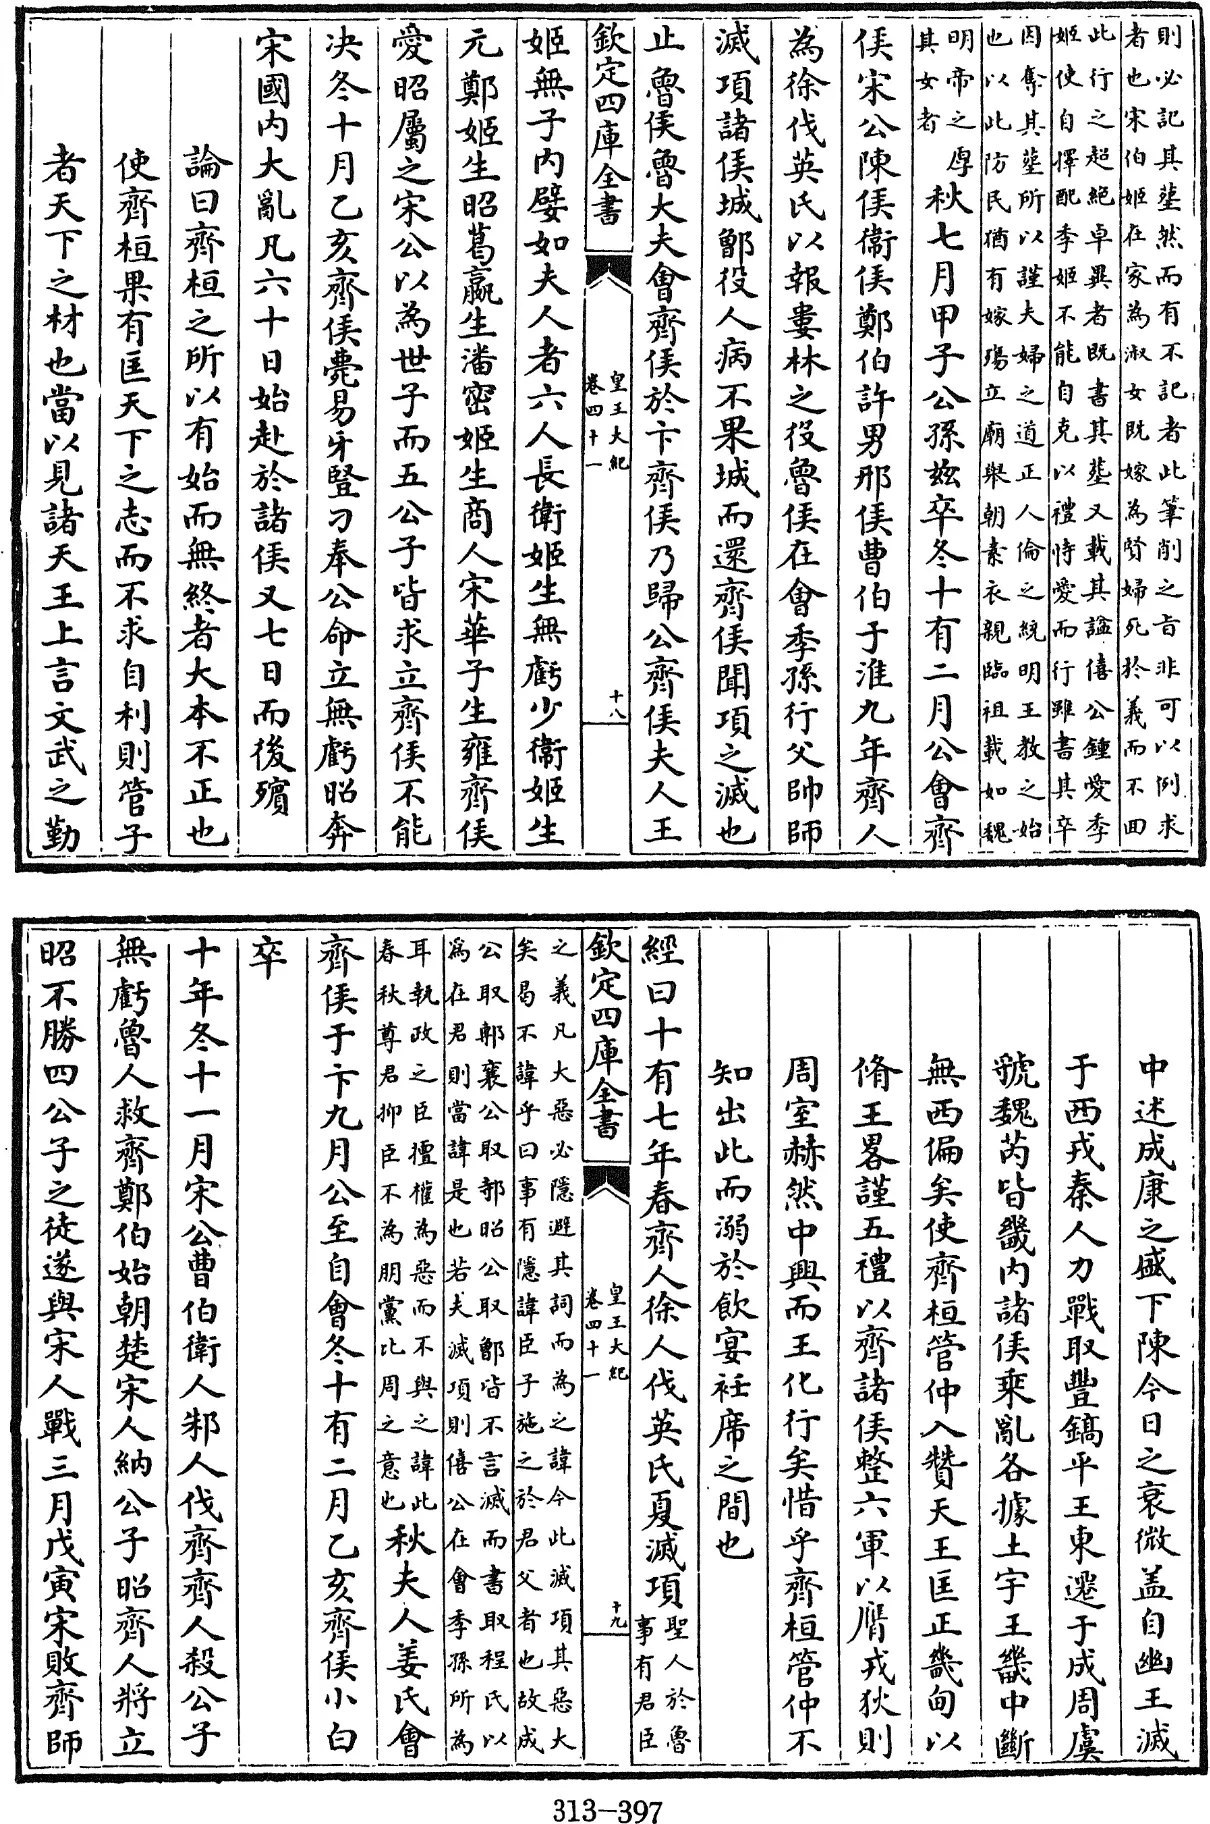 則必記其塟然而有不記者此筆削之旨非可以例求
者也宋伯姬在家為淑女既嫁為賢婦死於義而不回
此行之超絶卓異者既書其塟又載其諡僖公鍾愛季
姬使自擇配季姬不能自克以禮恃愛而行雖書其卒
因奪其塟所以謹夫婦之道正人倫之統明王教之始
也以此防民猶有嫁殤立廟舉朝素衣親臨祖載如魏
明帝之厚
其女者
秋七月甲子公孫兹卒冬十有二月公會齊
侯宋公陳侯衞侯鄭伯許男邢侯曹伯于淮九年齊人
為徐伐英氏以報婁林之役魯侯在會季孫行父帥師
滅項諸侯城鄫役人病不果城而還齊侯聞項之滅也
止魯侯魯大夫會齊侯於卞齊侯乃歸公齊侯夫人王
欽定四庫全書
皇王大紀
卷四十一
十八
姬無子内嬖如夫人者六人長衛姬生無虧少衛姬生
元鄭姬生昭葛嬴生潘密姬生商人宋華子生雍齊侯
愛昭屬之宋公以為世子而五公子皆求立齊侯不能
决冬十月乙亥齊侯薨易牙豎刁奉公命立無虧昭奔
宋國内大亂凡六十日始赴於諸侯又七日而後殯
論曰齊桓之所以有始而無終者大本不正也
使齊桓果有匡天下之志而不求自利則管子
者天下之材也當以見諸天王上言文武之勤
中述成康之盛下陳今日之衰微盖自幽王滅
于西戎秦人力戰取豐鎬平王東遷于成周虞
虢魏芮皆畿内諸侯乘亂各據土宇王畿中斷
無西偏矣使齊桓管仲入贊天王匡正畿甸以
脩王畧謹五禮以齊諸侯整六軍以膺戎狄則
周室赫然中興而王化行矣惜乎齊桓管仲不
知出此而溺於飲宴衽席之間也
經曰十有七年春齊人徐人伐英氏夏滅項
聖人於魯
事有君臣
欽定四庫全書
皇王大紀
卷四十一
十九
之義凡大惡必隱避其詞而為之諱今此滅項其惡大
矣曷不諱乎曰事有隱諱臣子施之於君父者也故成
公取鄟襄公取邿昭公取鄫皆不言滅而書取程氏以
為在君則當諱是也若夫滅項則僖公在會季孫所為
耳執政之臣擅權為惡而不與之諱此
春秋尊君抑臣不為朋黨比周之意也
秋夫人姜氏會
齊侯于卞九月公至自會冬十有二月乙亥齊侯小白
卒
十年冬十一月宋公曹伯衛人邾人伐齊齊人殺公子
無虧魯人救齊鄭伯始朝楚宋人納公子昭齊人將立
昭不勝四公子之徒遂與宋人戰三月戊寅宋敗齊師
313-397